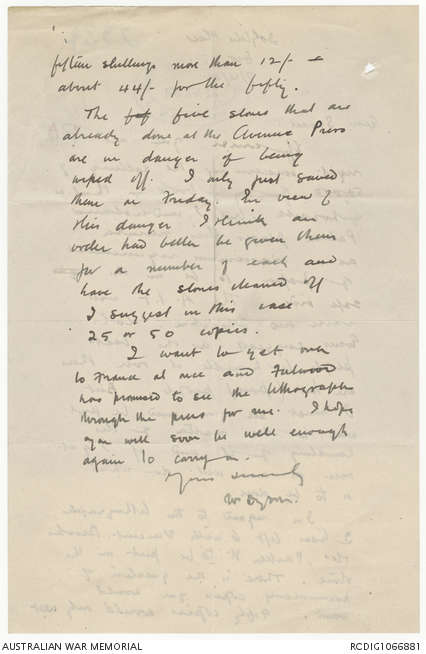 fifteen shillings more than 12/- &
about 44/- for the fifty.
The fif five stones that are
already done at the Avenue Press
are in danger of being
wiped off. I only just saved
them on Friday. In view of
this danger I think an
order had better be given them
for a number of each and
have the stones cleaned off
I suggest in this case
25 or 50 copies.
I want to get over
to France at once and Fulwood
has promised to see the lithographs
through the press for me. I hope
you will soon be well enough
again to carry on.
Yours sincerely
W Dyson.
AUSTRALIAN WAR MEMORIAL
RCDIG1066881